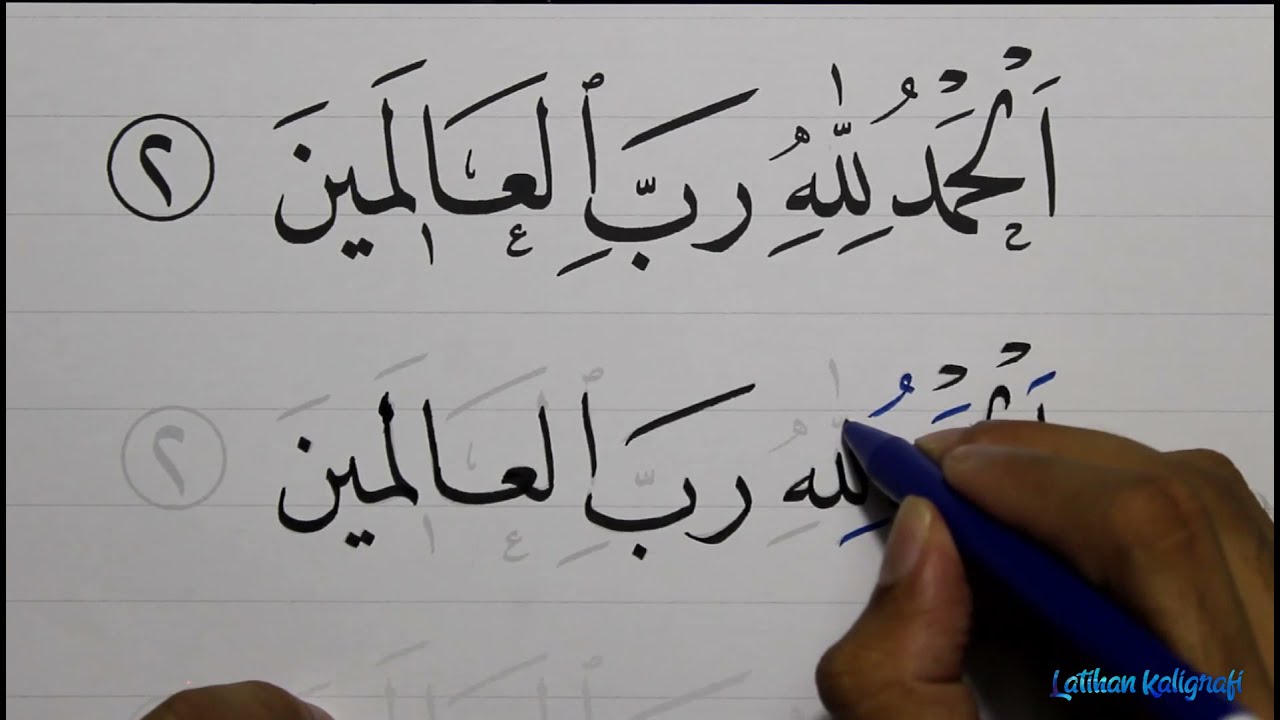 اَلْحَمْدُ لِلّٰهِ رَبِّ ٱلْعَالَمِينَ ٢
اَلْحَمْدُ لِلّٰهِ رَبِّ ٱلْعَالَمِينَ ٢
Latihan Kaligrafi